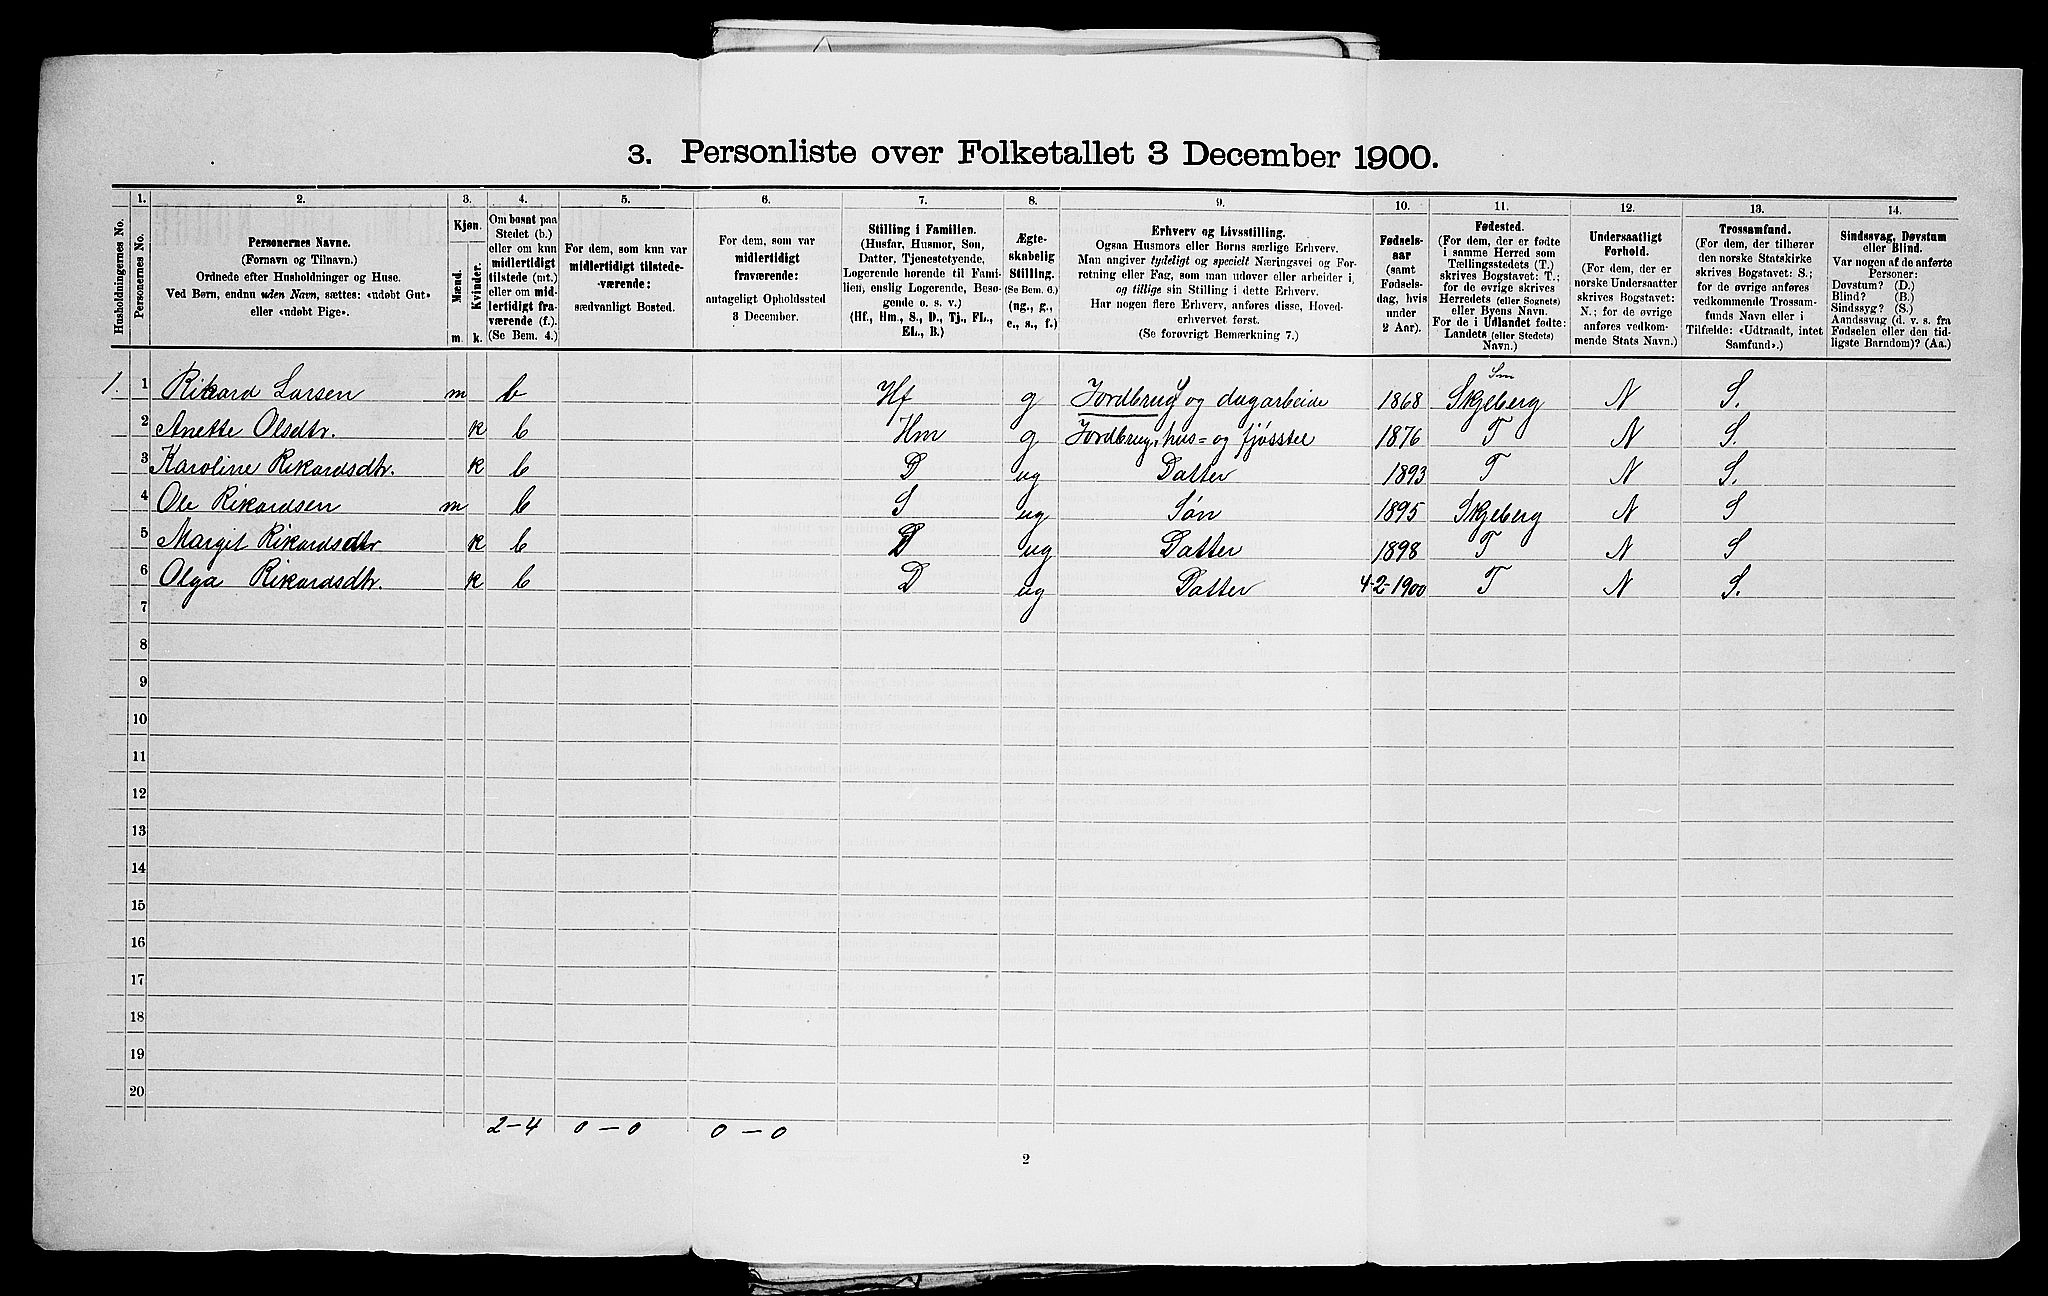 3. Personliste over Folketallet 3 December 1900.
Husholdningernes No.
1.
Personernes No.
2.
Personernes Navne.
(Fornavn og Tilnavn.)
Ordnede efter Husholdninger og Huse.
Ved Børn, endnu uden Navn, sættes: «udøbt Gut»
eller «udøbt Pige».
3.
Kjøn.
Mænd.
Kvinder.
m. k.
4.
Om bosat paa
Stedet (b.)
eller om kun
midlertidigt
tilstede (mt.)
eller om mid-
lertidigt fra-
værende (f.).
(Se Bem. 4.)
5.
For dem, som kun var
midlertidigt tilstede-
værende:
sædvanligt Bosted.
6.
For dem, som var
midlertidigt
fraværende:
antageligt Opholdssted
3 December.
7.
Stilling i Familien.
(Husfar, Husmor, Søn,
Datter, Tjenestetyende,
Logerende hørende til Fami-
lien, enslig Logerende, Besø-
gende o. s. v.)
(Hf., Hm., S., D., Tj., FL.,
EL., B.)
8.
Ægte-
skabelig
Stilling.
(Se Bem. 6.)
(ug., g.,
e., s., f.)
9.
Erhverv og Livsstilling.
Ogsaa Husmors eller Børns særlige Erhverv.
Man angiver tydeligt og specielt Næringsvei og For-
retning eller Fag, som man udøver eller arbeider i,
og tillige sin Stilling i dette Erhverv.
Har nogen flere Erhverv, anføres disse, Hoved-
erhvervet først.
(Se forøvrigt Bemærkning 7.)
10.
Fødsels-
aar
(samt
Fødsels-
dag, hvis
under
2 Aar).
11.
Fødested.
(For dem, der er fødte
i samme Herred som
Tællingsstedets (T.)
skrives Bogstavet: T.;
for de øvrige skrives
Herredets (eller Sognets)
eller Byens Navn.
For de i Udlandet fødte:
Landets (eller Stedets)
Navn.)
12.
Undersaatligt
Forhold.
(For dem, der er
norske Undersaatter
skrives Bogstavet:
N.; for de øvrige
anføres vedkom-
mende Stats Navn.)
13.
Trossamfund.
(For dem, der tilhører
den norske Statskirke
skrives Bogstavet: S.;
for de øvrige anføres
vedkommende Trossam-
funds Navn eller i
Tilfælde: «Udtraadt, intet
Samfund».)
14.
Sindssvag, Døvstum
eller Blind.
Var nogen af de anførte
Personer:
Døvstum? (D.)
Blind? (B.)
Sindssyg? (S.)
Aandssvag (d. v. s. fra
Fødselen eller den tid-
ligste Barndom)? (Aa.)
1. 1 Rikard Larsen m b Hf g Jordbrug og dagarbeide 1868 Skjeberg Sm N S.
2 Anette Olsdtr. k b Hm g Jordbrug, hus- og fjøsstel 1876 T N S.
3 Karoline Rikardsdtr. k b D ug Datter 1893 T N S.
4 Ole Rikardsen m b S ug Søn 1895 Skjeberg N S
5 Margit Rikardsdtr k b D ug Datter 1898 T N S
6 Olga Rikardsdtr. k b D ug Datter 4-2-1900 T N S.
7
8
9
10
11
12
13
14
15
16
17
18
19
20
2-4 0-0 0-0
2